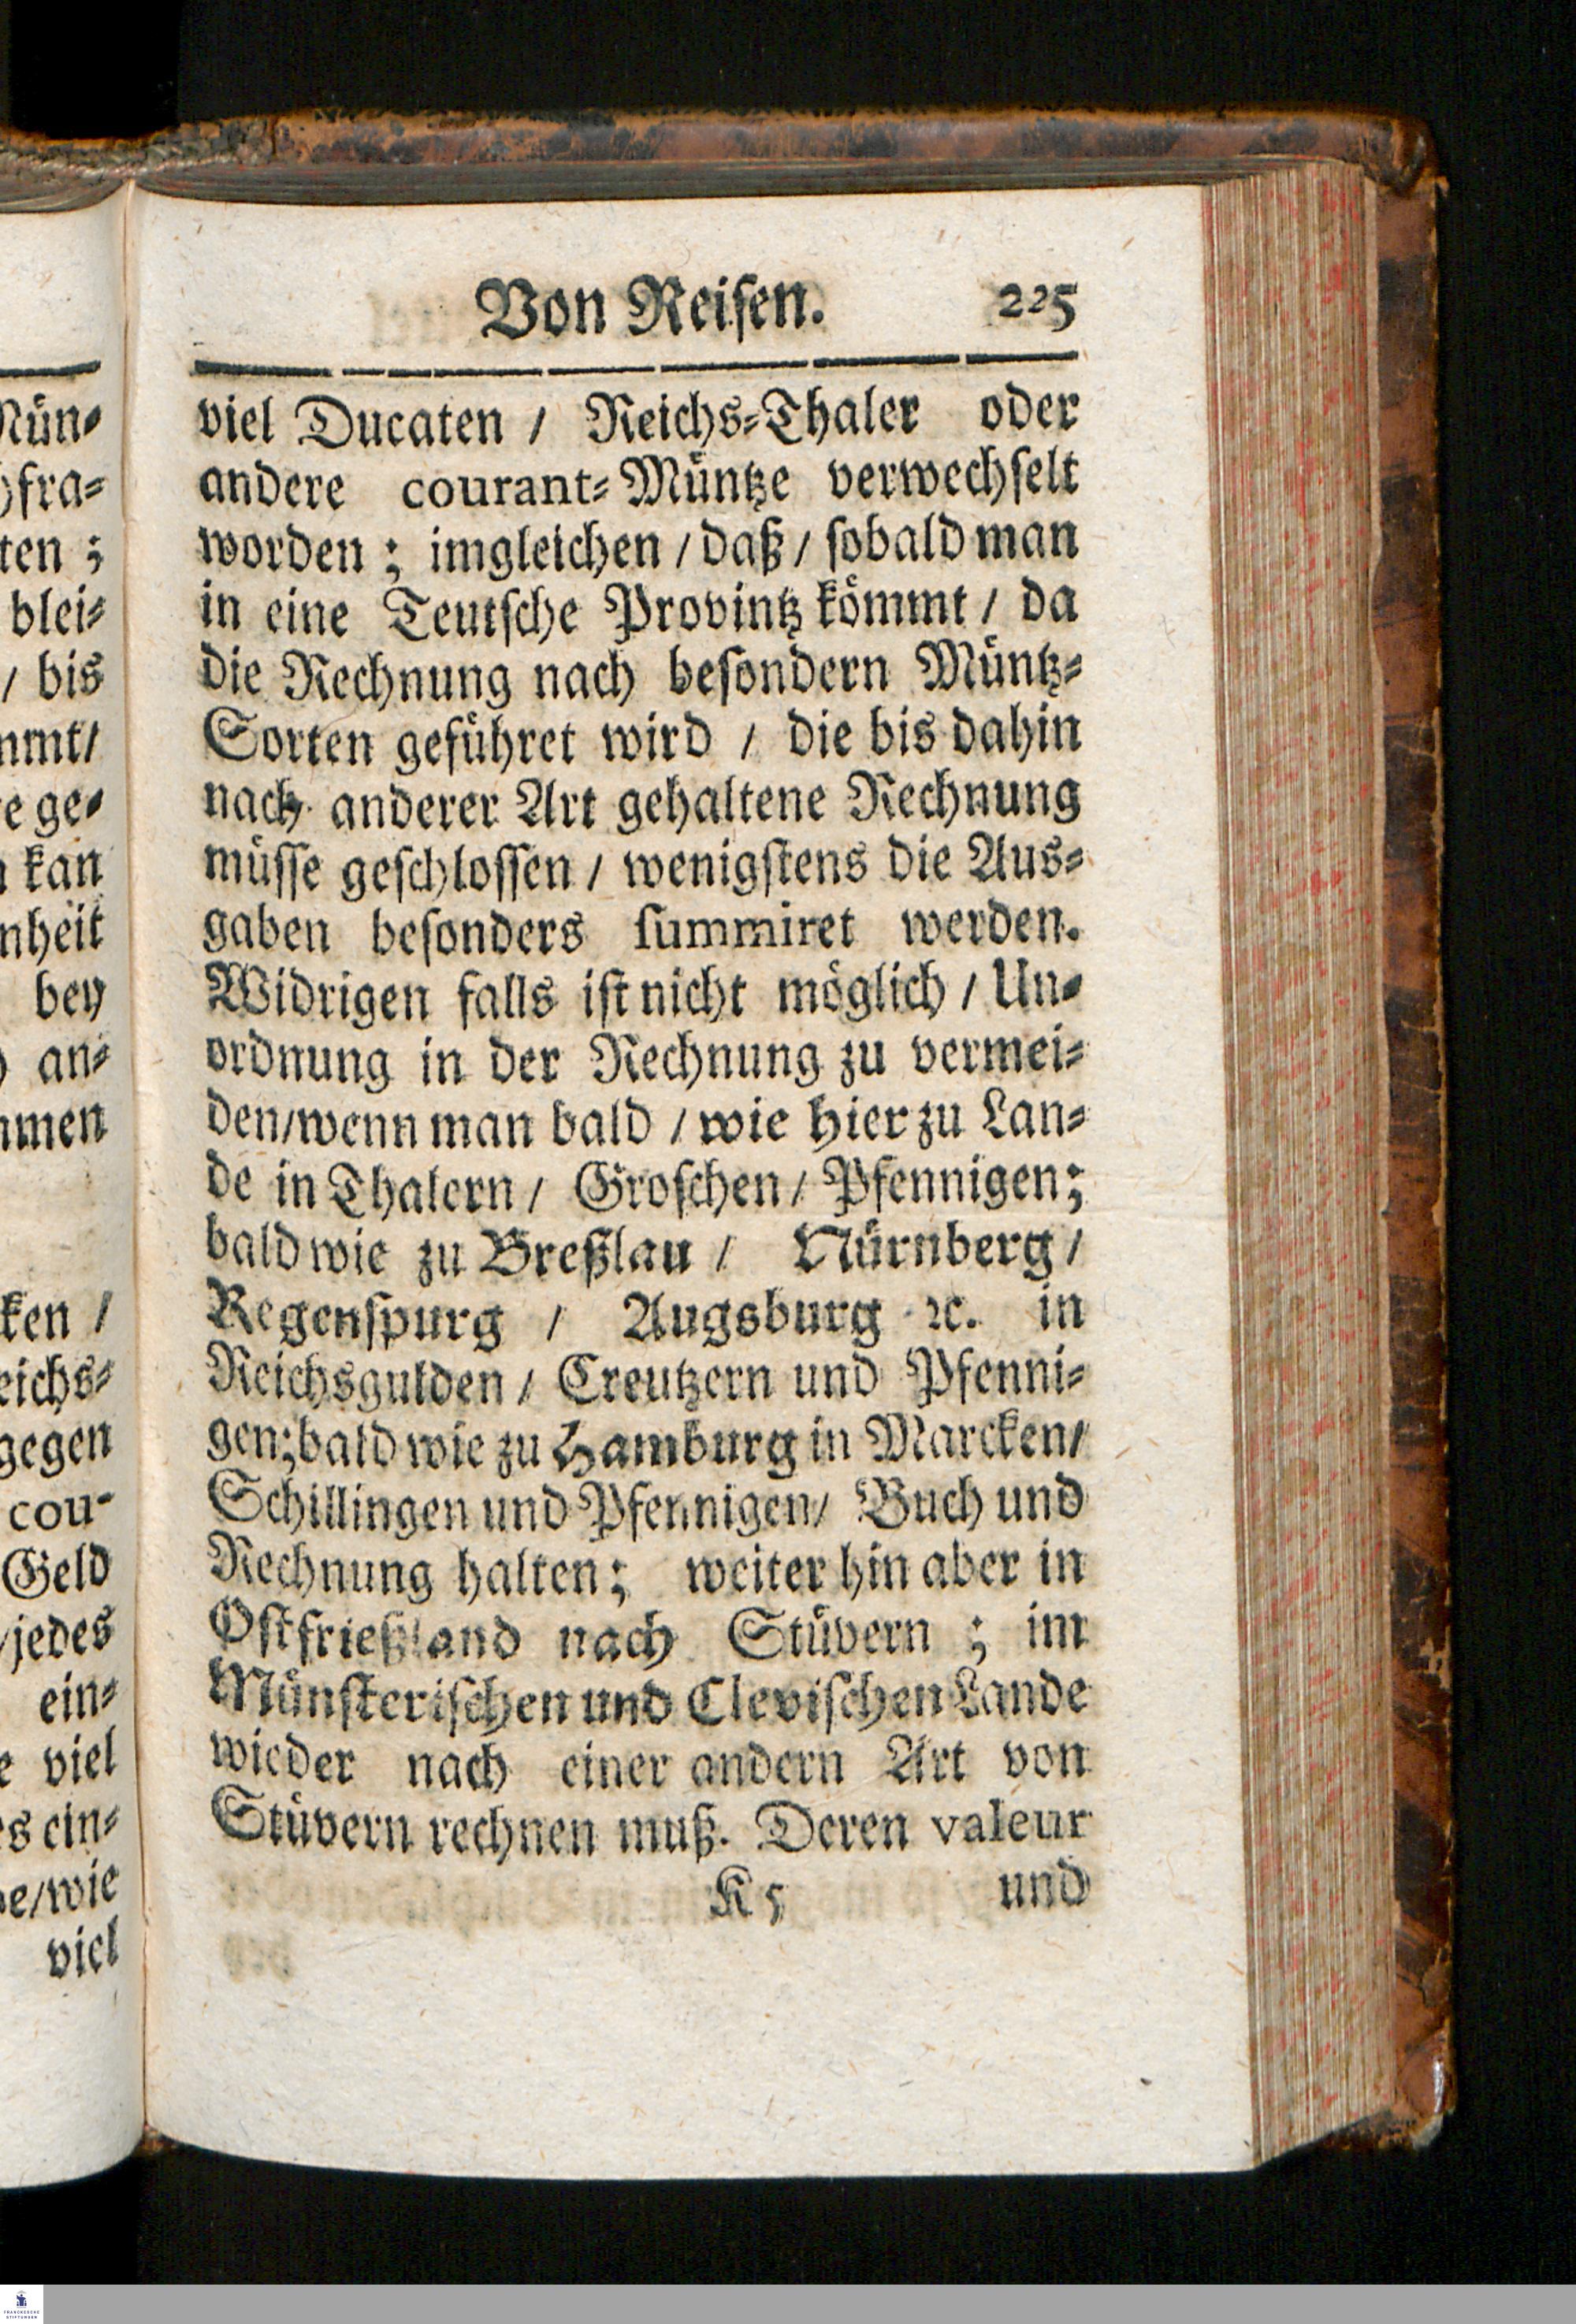 Von Reisen. 225
viel Ducaten / Reichs-Thaler oder
andere courant-Müntze verwechselt
worden; imgleichen / daß / sobald man
in eine Teutsche Provintz kömmt / da
die Rechnung nach besondern Müntz-
Sorten geführet wird / die bis dahin
nach anderer Art gehaltene Rechnung
müsse geschlossen / wenigstens die Aus-
gaben besonders summiret werden.
Widrigen falls ist nicht möglich / Un-
ordnung in der Rechnung zu vermei-
den / wenn man bald / wie hier zu Lan-
de in Thalern / Groschen / Pfennigen;
bald wie zu Breßlau / Nürnberg /
Regenspurg / Augsburg ꝛc. in
Reichsgulden / Creutzern und Pfenni-
gen; bald wie zu Hamburg in Marcken /
Schillingen und Pfennigen / Buch und
Rechnung halten; weiter hin aber in
Ostfrießland nach Stüvern; im
Münsterischen und Clevischen Lande
wieder nach einer andern Art von
Stüvern rechnen muß. Deren valeur
K 5 und